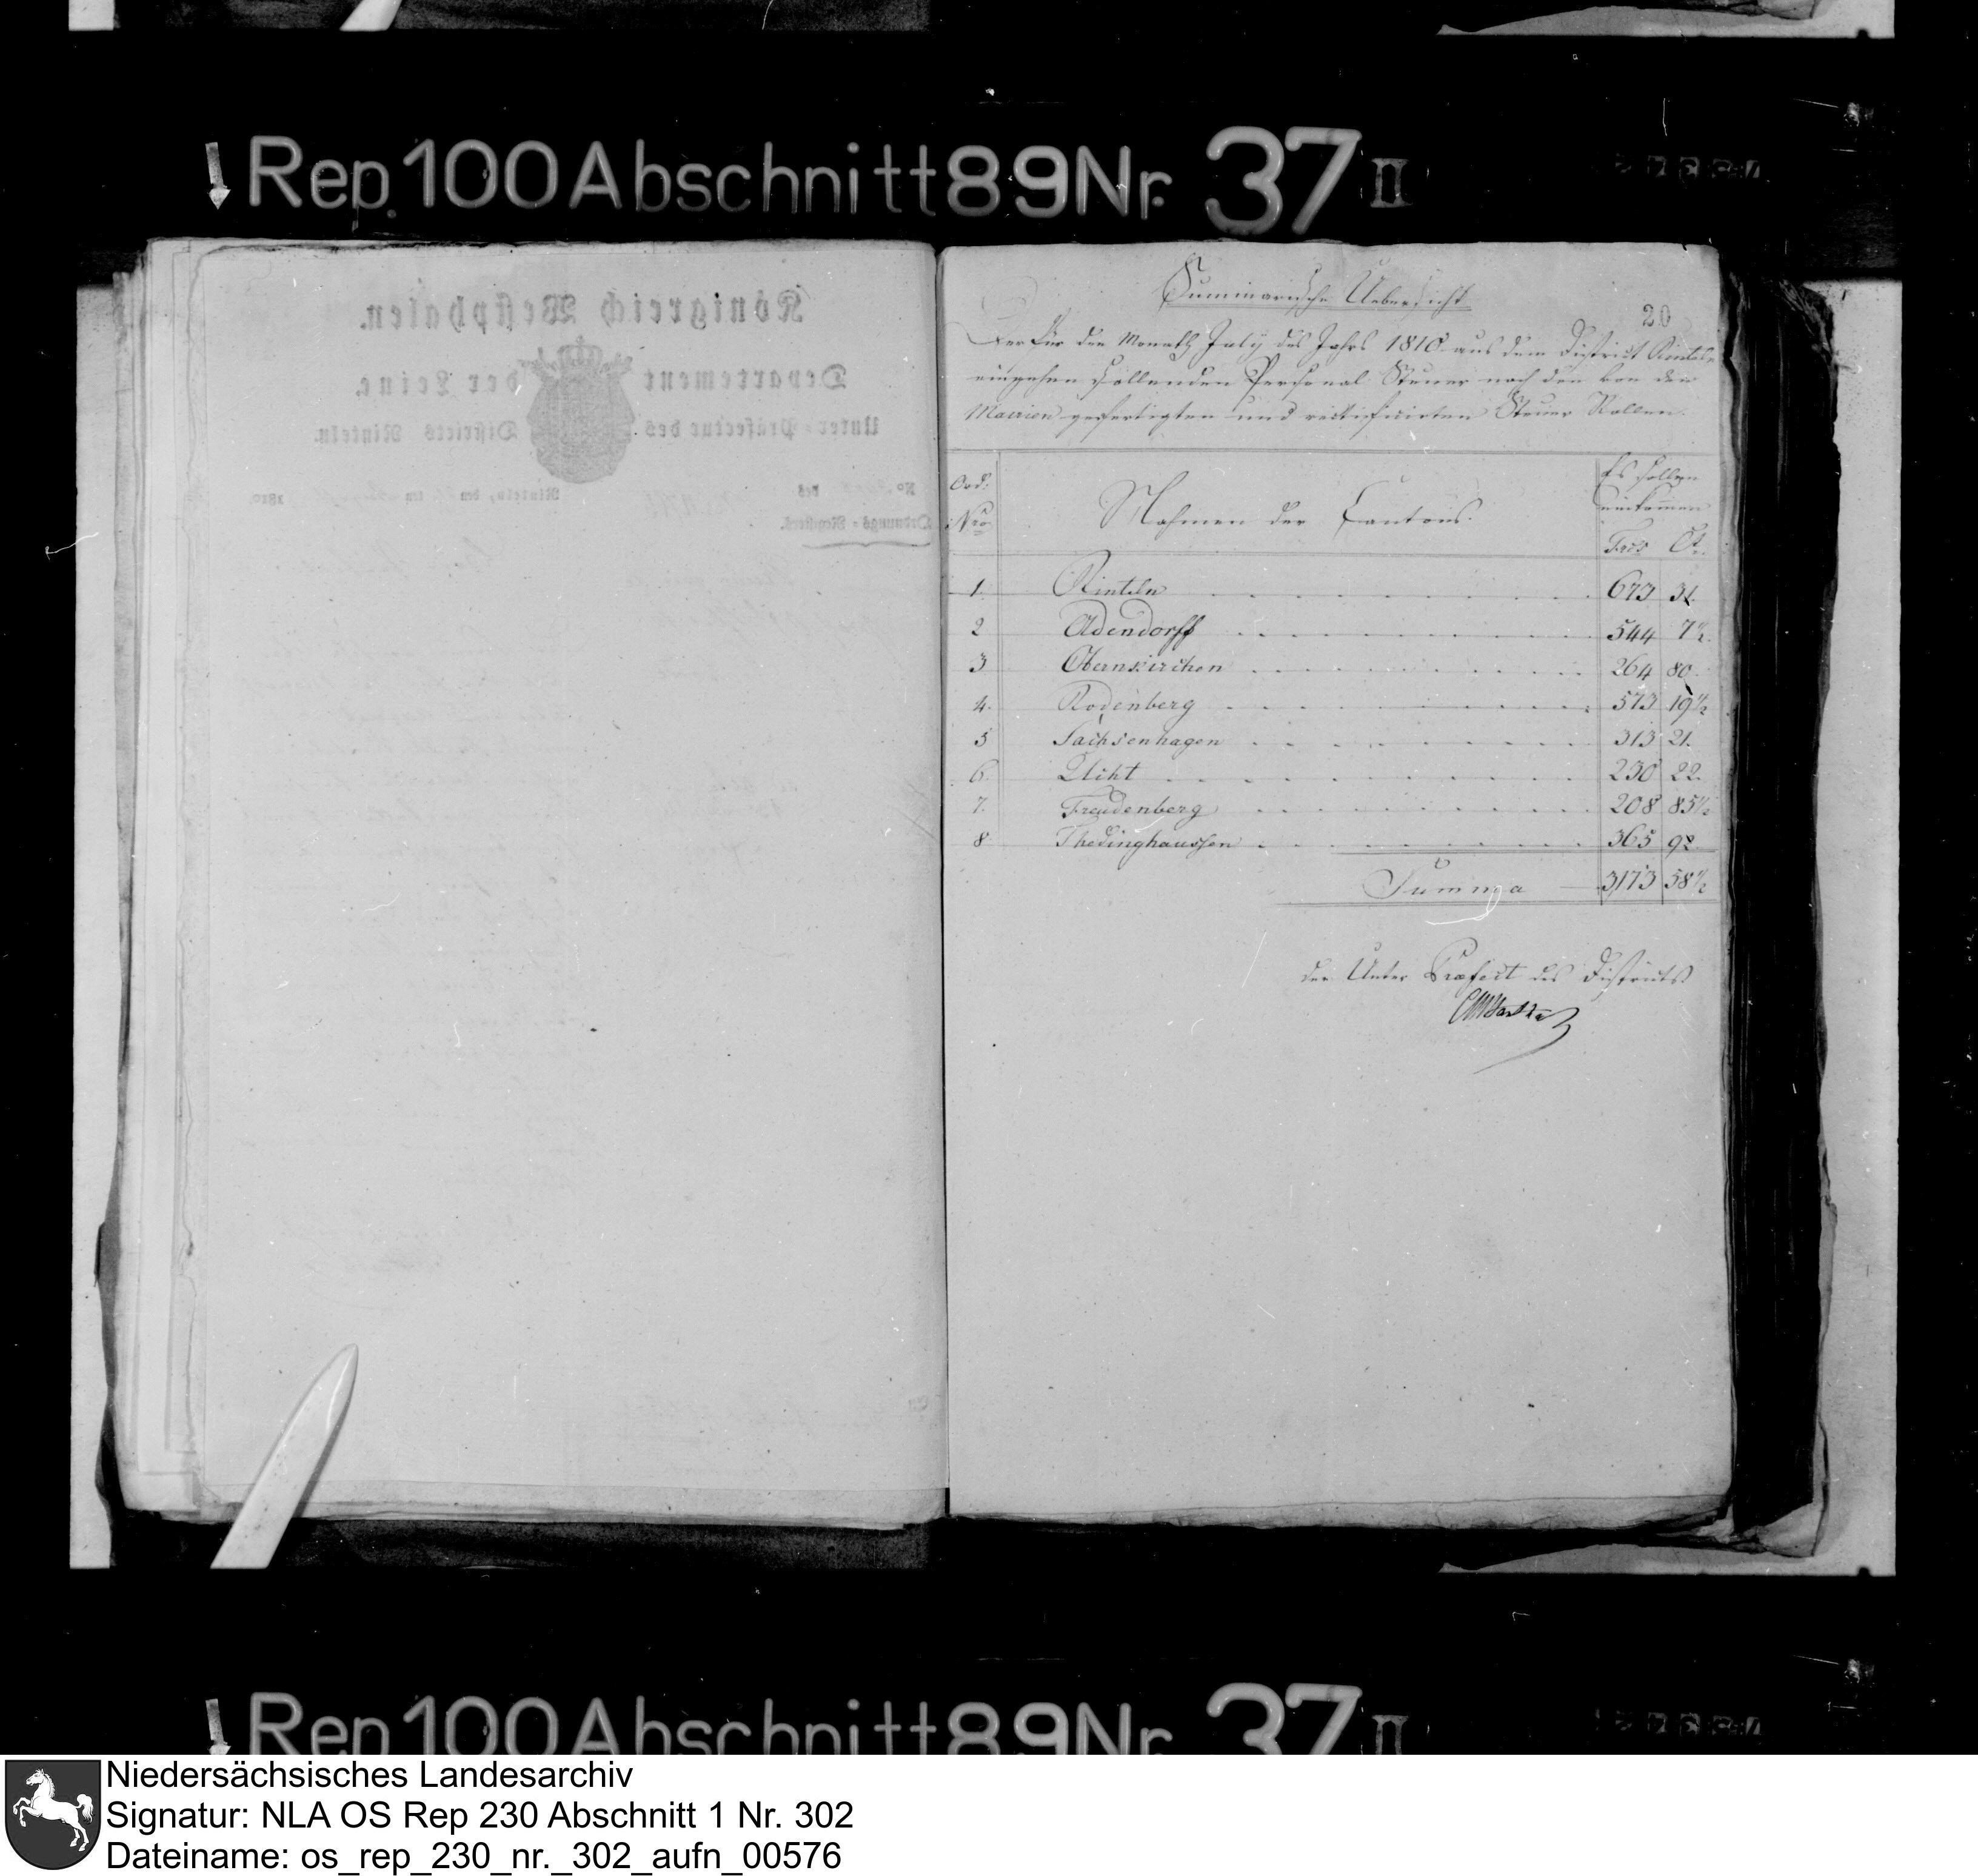 Rep. 100 Abschnitt 89 Nr. 37 II
Königreich Westphalen.
Departement der Leine.
Unter-Präfectur des Districts Rinteln.
No. des Rinteln, den ten 1810
Ordnungs-Numfers.
20
Summarische Uebersicht
Der für den Monath July des Jahrs 1810 aus dem District Rinteln
eingehen sollenden Personal Steuer nach den von den
Mairien gefertigten und rectificirten Steuer Rollen
Ord: Nro. Nahmen der Cantons. Es sollen einkommen
Frcs Ct.
1. Rinteln 673 31.
2 Oldendorff 544 7½.
3 Obernkirchen 264 80.
4. Rodenberg 573 19½
5 Sachsenhagen 313 21.
6. Uchte 230 22.
7. Freudenberg 208 85½
8 Thedinghaussen 365 92.
Summa 3173 58½
der Unter Præfect des Districts
Rep 100 Abschnitt 89 Nr. 37 II
Niedersächsisches Landesarchiv
Signatur: NLA OS Rep 230 Abschnitt 1 Nr. 302
Dateiname: os_rep_230_nr._302_aufn_00576